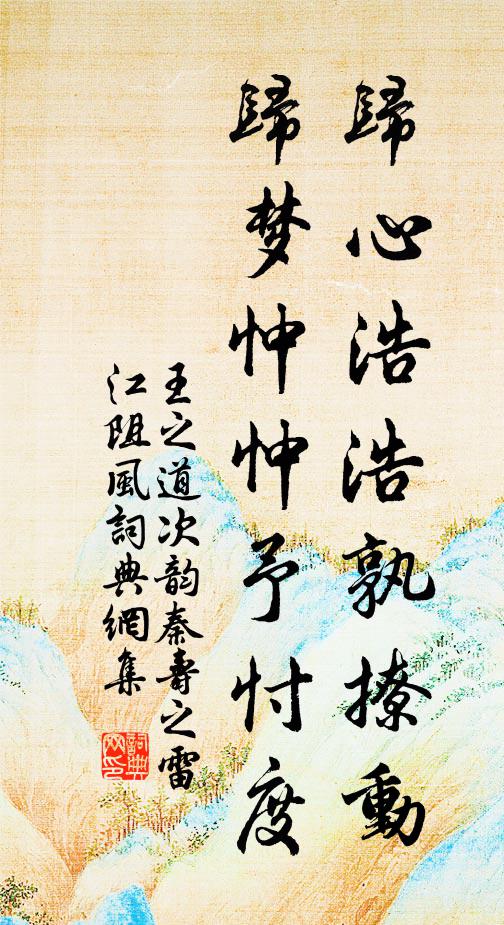 歸心浩浩孰撩動
歸梦忡忡予忖度
王之道次韵秦壽之雷
江阻風詞典網集
詞典網印